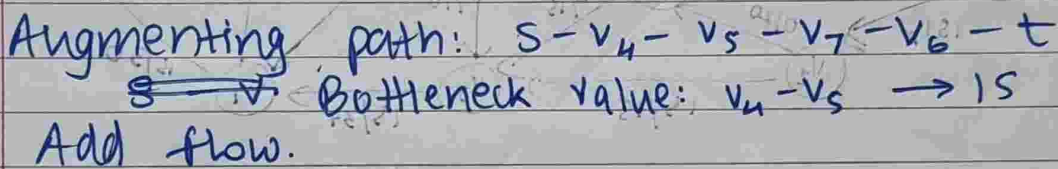 Augmenting path: S - V4 - V5 - V7 - V6 - t
Bottleneck value: V4 - V5 → 15
Add flow.